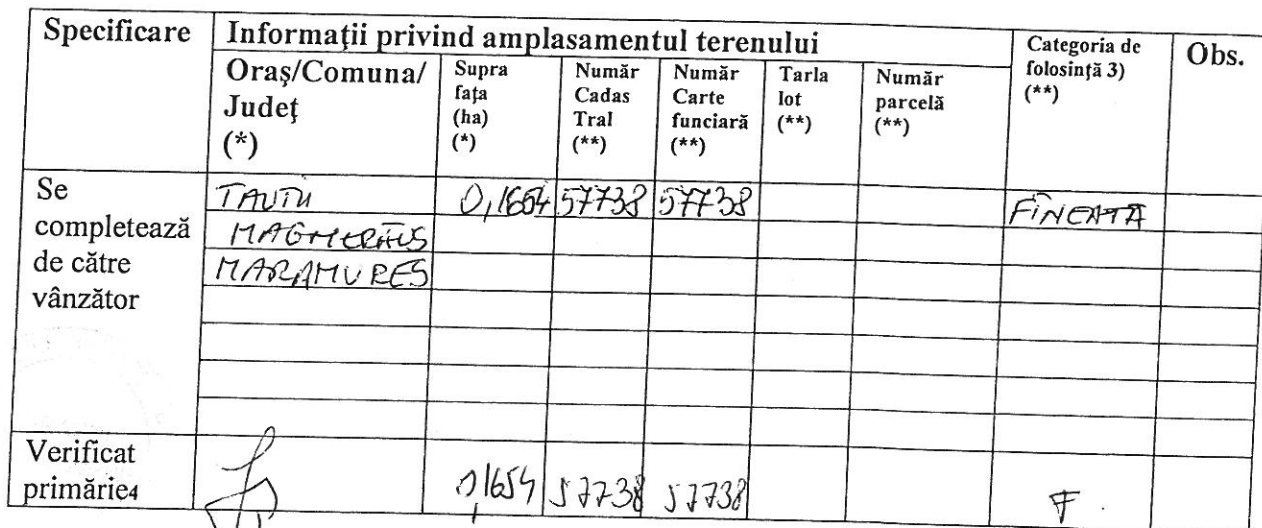 Specificare
Informații privind amplasamentul terenului
Categoria de folosință 3) (**)
Obs.
Oraș/Comuna/ Județ (*)
Supra fața (ha) (*)
Număr Cadas Tral (**)
Număr Carte funciară (**)
Tarla lot (**)
Număr parcelă (**)
Se completează de către vânzător
TAUTII 0,1654 57738 57738 FÎNEATĂ
MAGHERĂUS
MARAMURES
Verificat primărie4
0,1654 57738 57738 F.